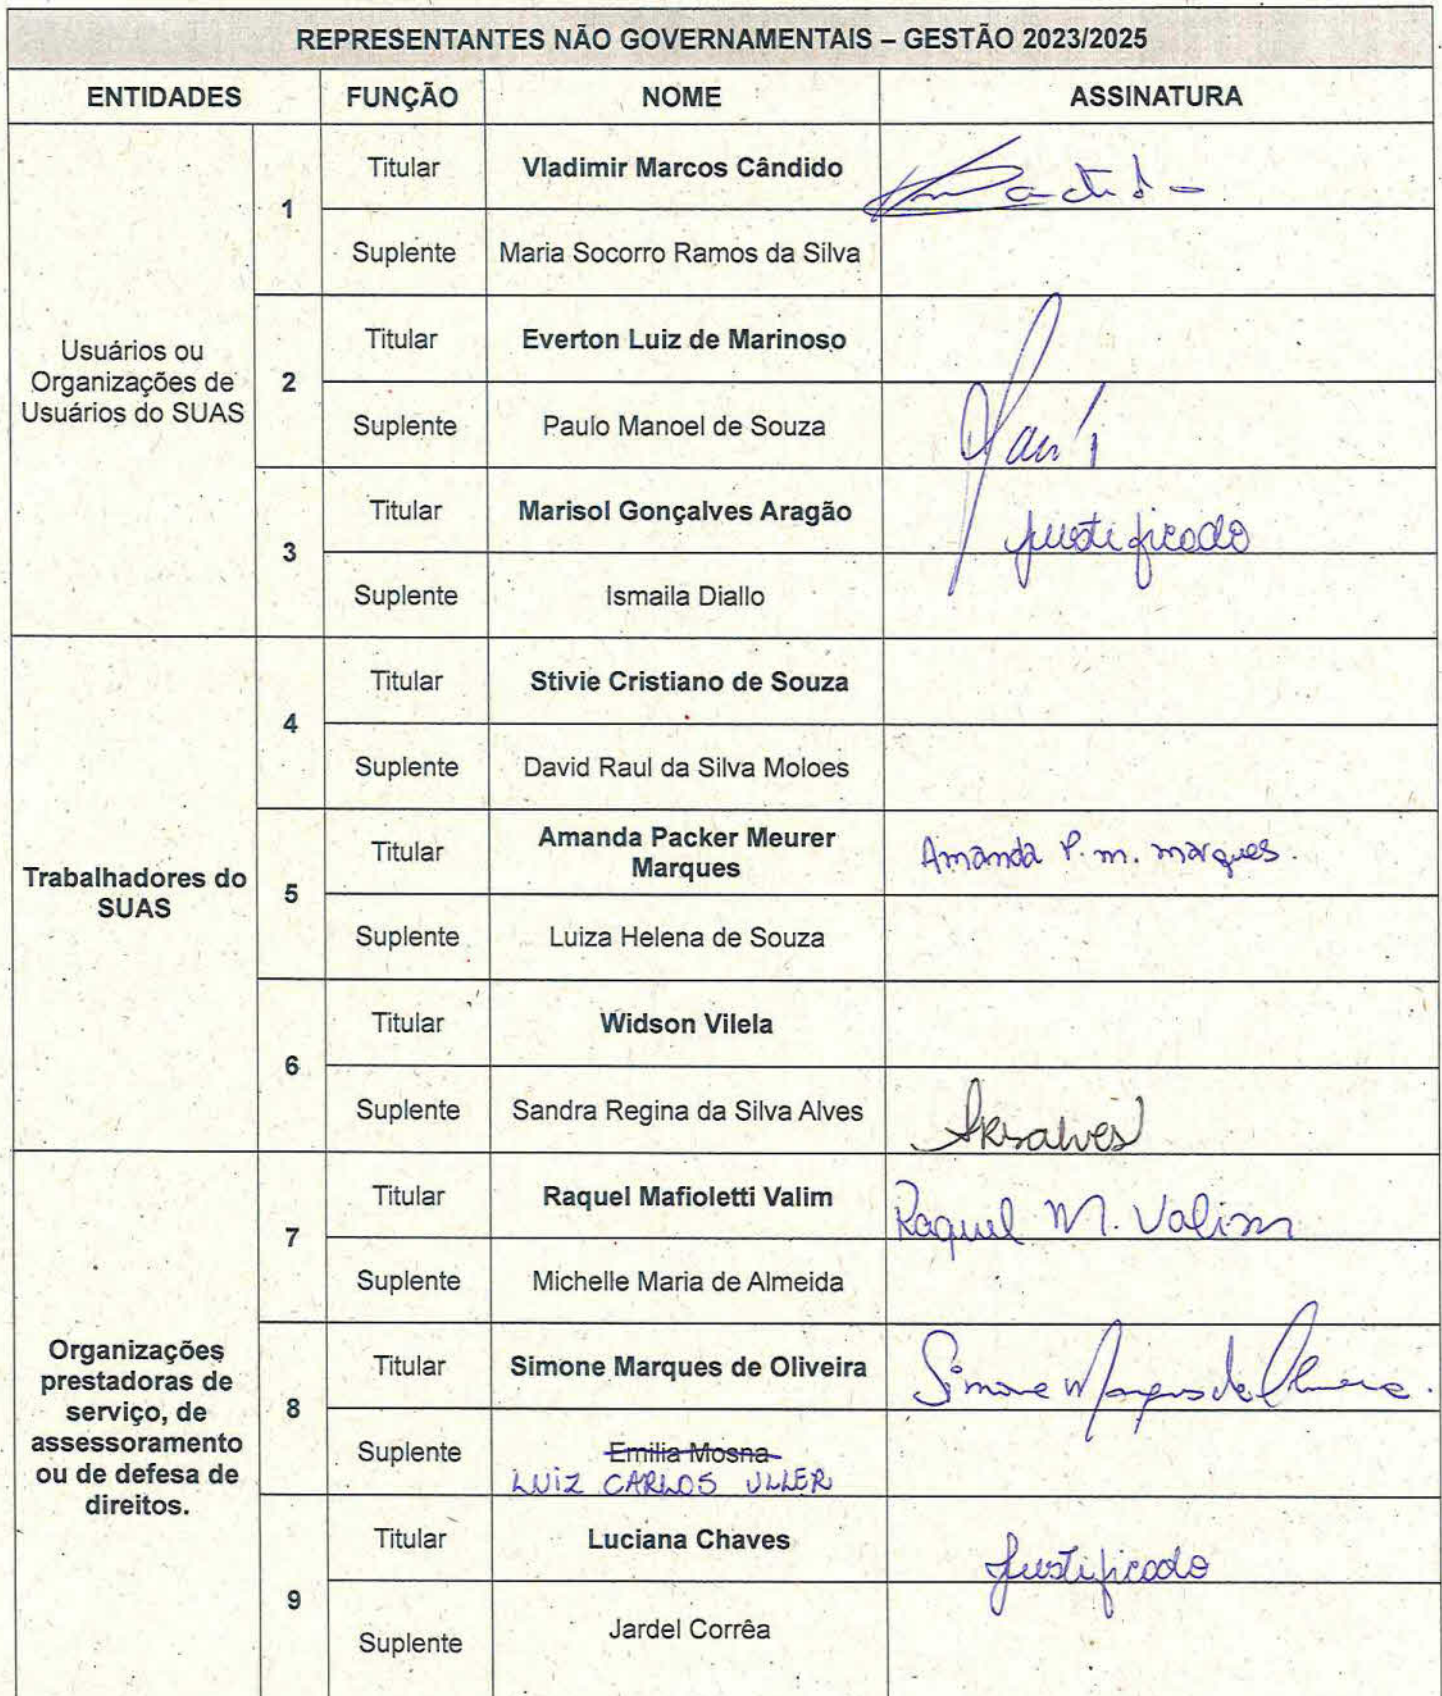 REPRESENTANTES NÃO GOVERNAMENTAIS – GESTÃO 2023/2025
ENTIDADES FUNÇÃO NOME ASSINATURA
Usuários ou
Organizações de
Usuários do SUAS
1
Titular Vladimir Marcos Cândido
Suplente Maria Socorro Ramos da Silva
2
Titular Everton Luiz de Marinoso
Suplente Paulo Manoel de Souza
3
Titular Marisol Gonçalves Aragão Justificado
Suplente Ismaila Diallo
Trabalhadores do
SUAS
4
Titular Stivie Cristiano de Souza
Suplente David Raul da Silva Moloes
5
Titular Amanda Packer Meurer
Marques
Amanda P. m. marques.
Suplente Luiza Helena de Souza
6
Titular Widson Vilela
Suplente Sandra Regina da Silva Alves
Organizações
prestadoras de
serviço, de
assessoramento
ou de defesa de
direitos.
7
Titular Raquel Mafioletti Valim Raquel M. Valim
Suplente Michelle Maria de Almeida
8
Titular Simone Marques de Oliveira Simone Marques de Oliveira.
Suplente Emilia Mosna
LUIZ CARLOS ULLER
9
Titular Luciana Chaves Justificado
Suplente Jardel Corrêa